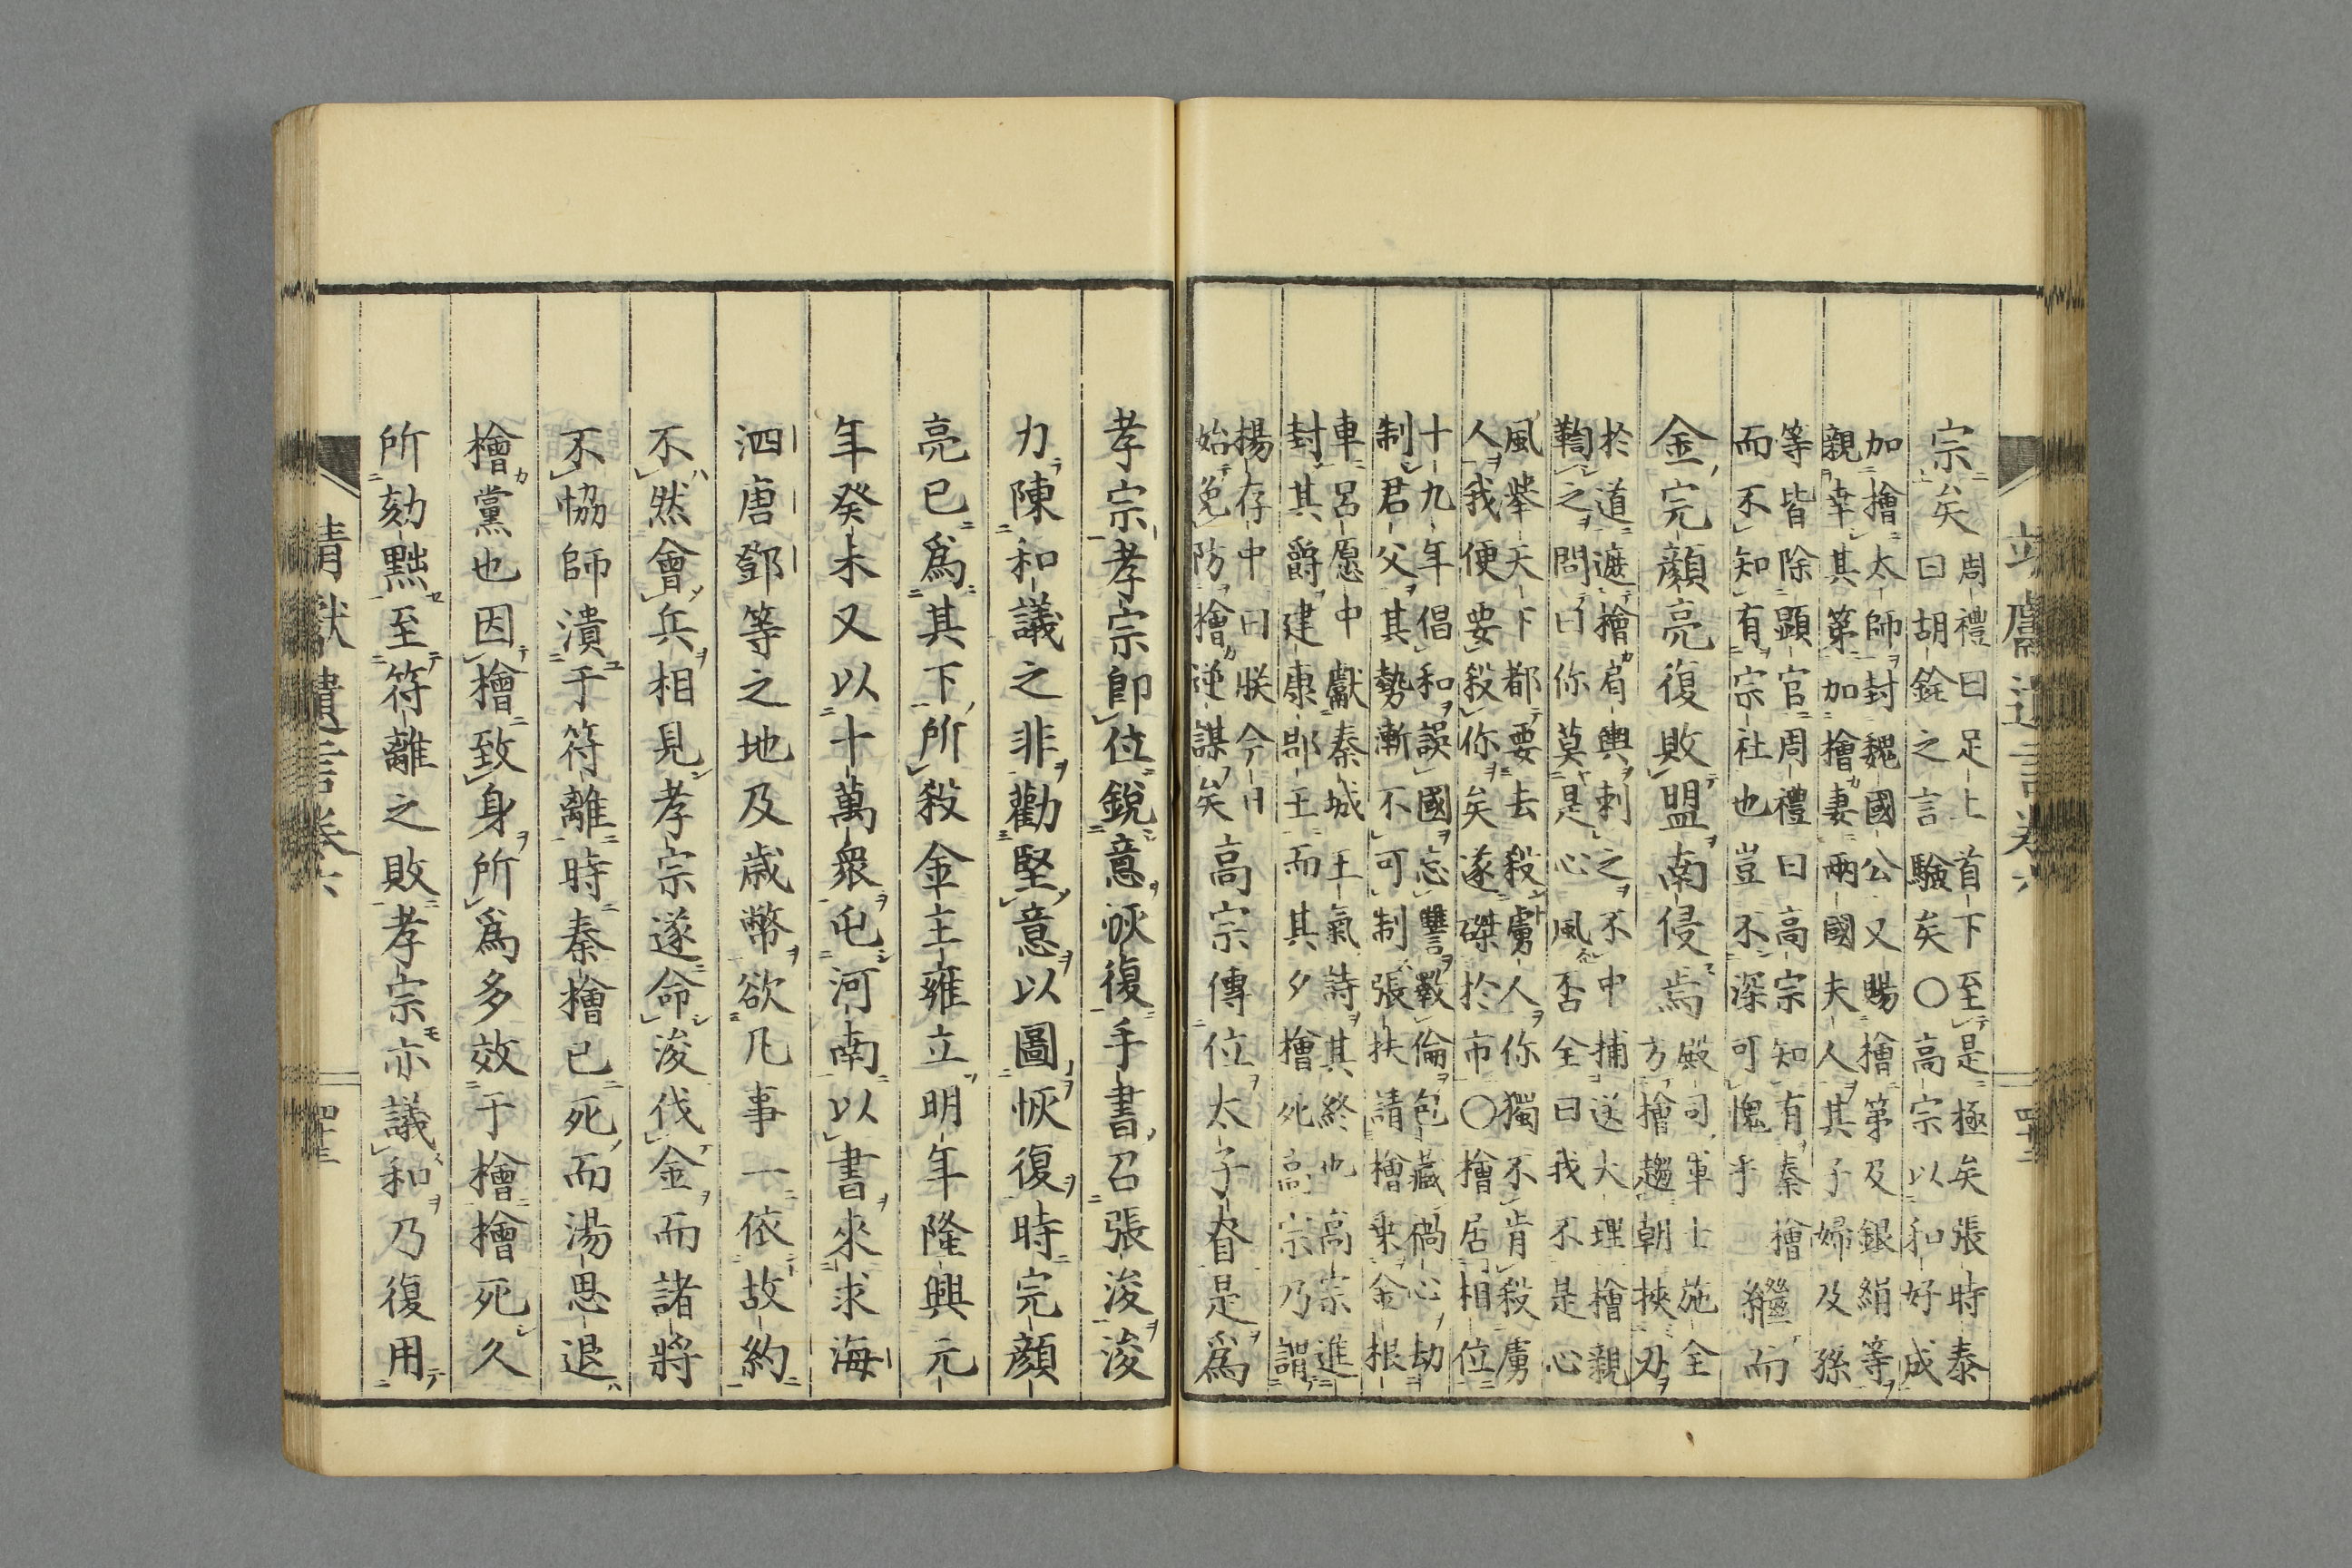 宗矣
周禮曰足上首下至是極矣張時泰
曰胡銓之言驗矣〇高宗以和好成
加檜太師封魏國公又賜檜第及銀絹等
親幸其第加檜妻兩國夫人其子婦及孫
等皆除顯官周禮曰高宗知有秦檜
而不知有宗社也豈不深可愧乎
繼而
金完顏亮復敗盟南侵焉
殿司軍士施全
方檜趨朝挾刃
於道遮檜肩輿刺之不中捕送大理檜親
鞫之問曰你莫是心風否全曰我不是心
風舉天下都要去殺虜人你獨不肯殺虜
人我便要殺你矣遂磔於市〇檜居相位
十九年倡和誤國忘讐斁倫包藏禍心劫
制君父其勢漸不可制張扶請檜乗金根
車呂愿中獻秦城王氣詩其終也高宗進
封其爵建康郡王而其夕檜死高宗乃謂
揚存中曰朕今日
始免防檜逆謀矣
高宗傳位太子眘是爲
孝宗孝宗卽位銳意恢復手書召張浚浚
力陳和議之非勸堅意以圖恢復時完顏
亮已爲其下所殺金主雍立明年隆興元
年癸未又以十萬衆屯河南以書來求海
泗唐鄧等之地及歲幣欲凡事一依故約
不然會兵相見孝宗遂命浚伐金而諸將
不恊師潰于符離時秦檜已死而湯思退
檜黨也因檜致身所爲多效于檜檜死久
所劾黜至符離之敗孝宗亦議和乃復用